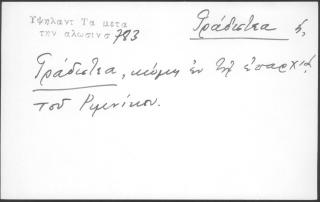 Ὑψηλαντ Τα μετα
την αλωσιν σ 783
Γράδιστεα, ἡ,
Γράδιστεα, κώμη ἐν τῇ ἐπαρχίᾳ
τοῦ Ριμνίκου.